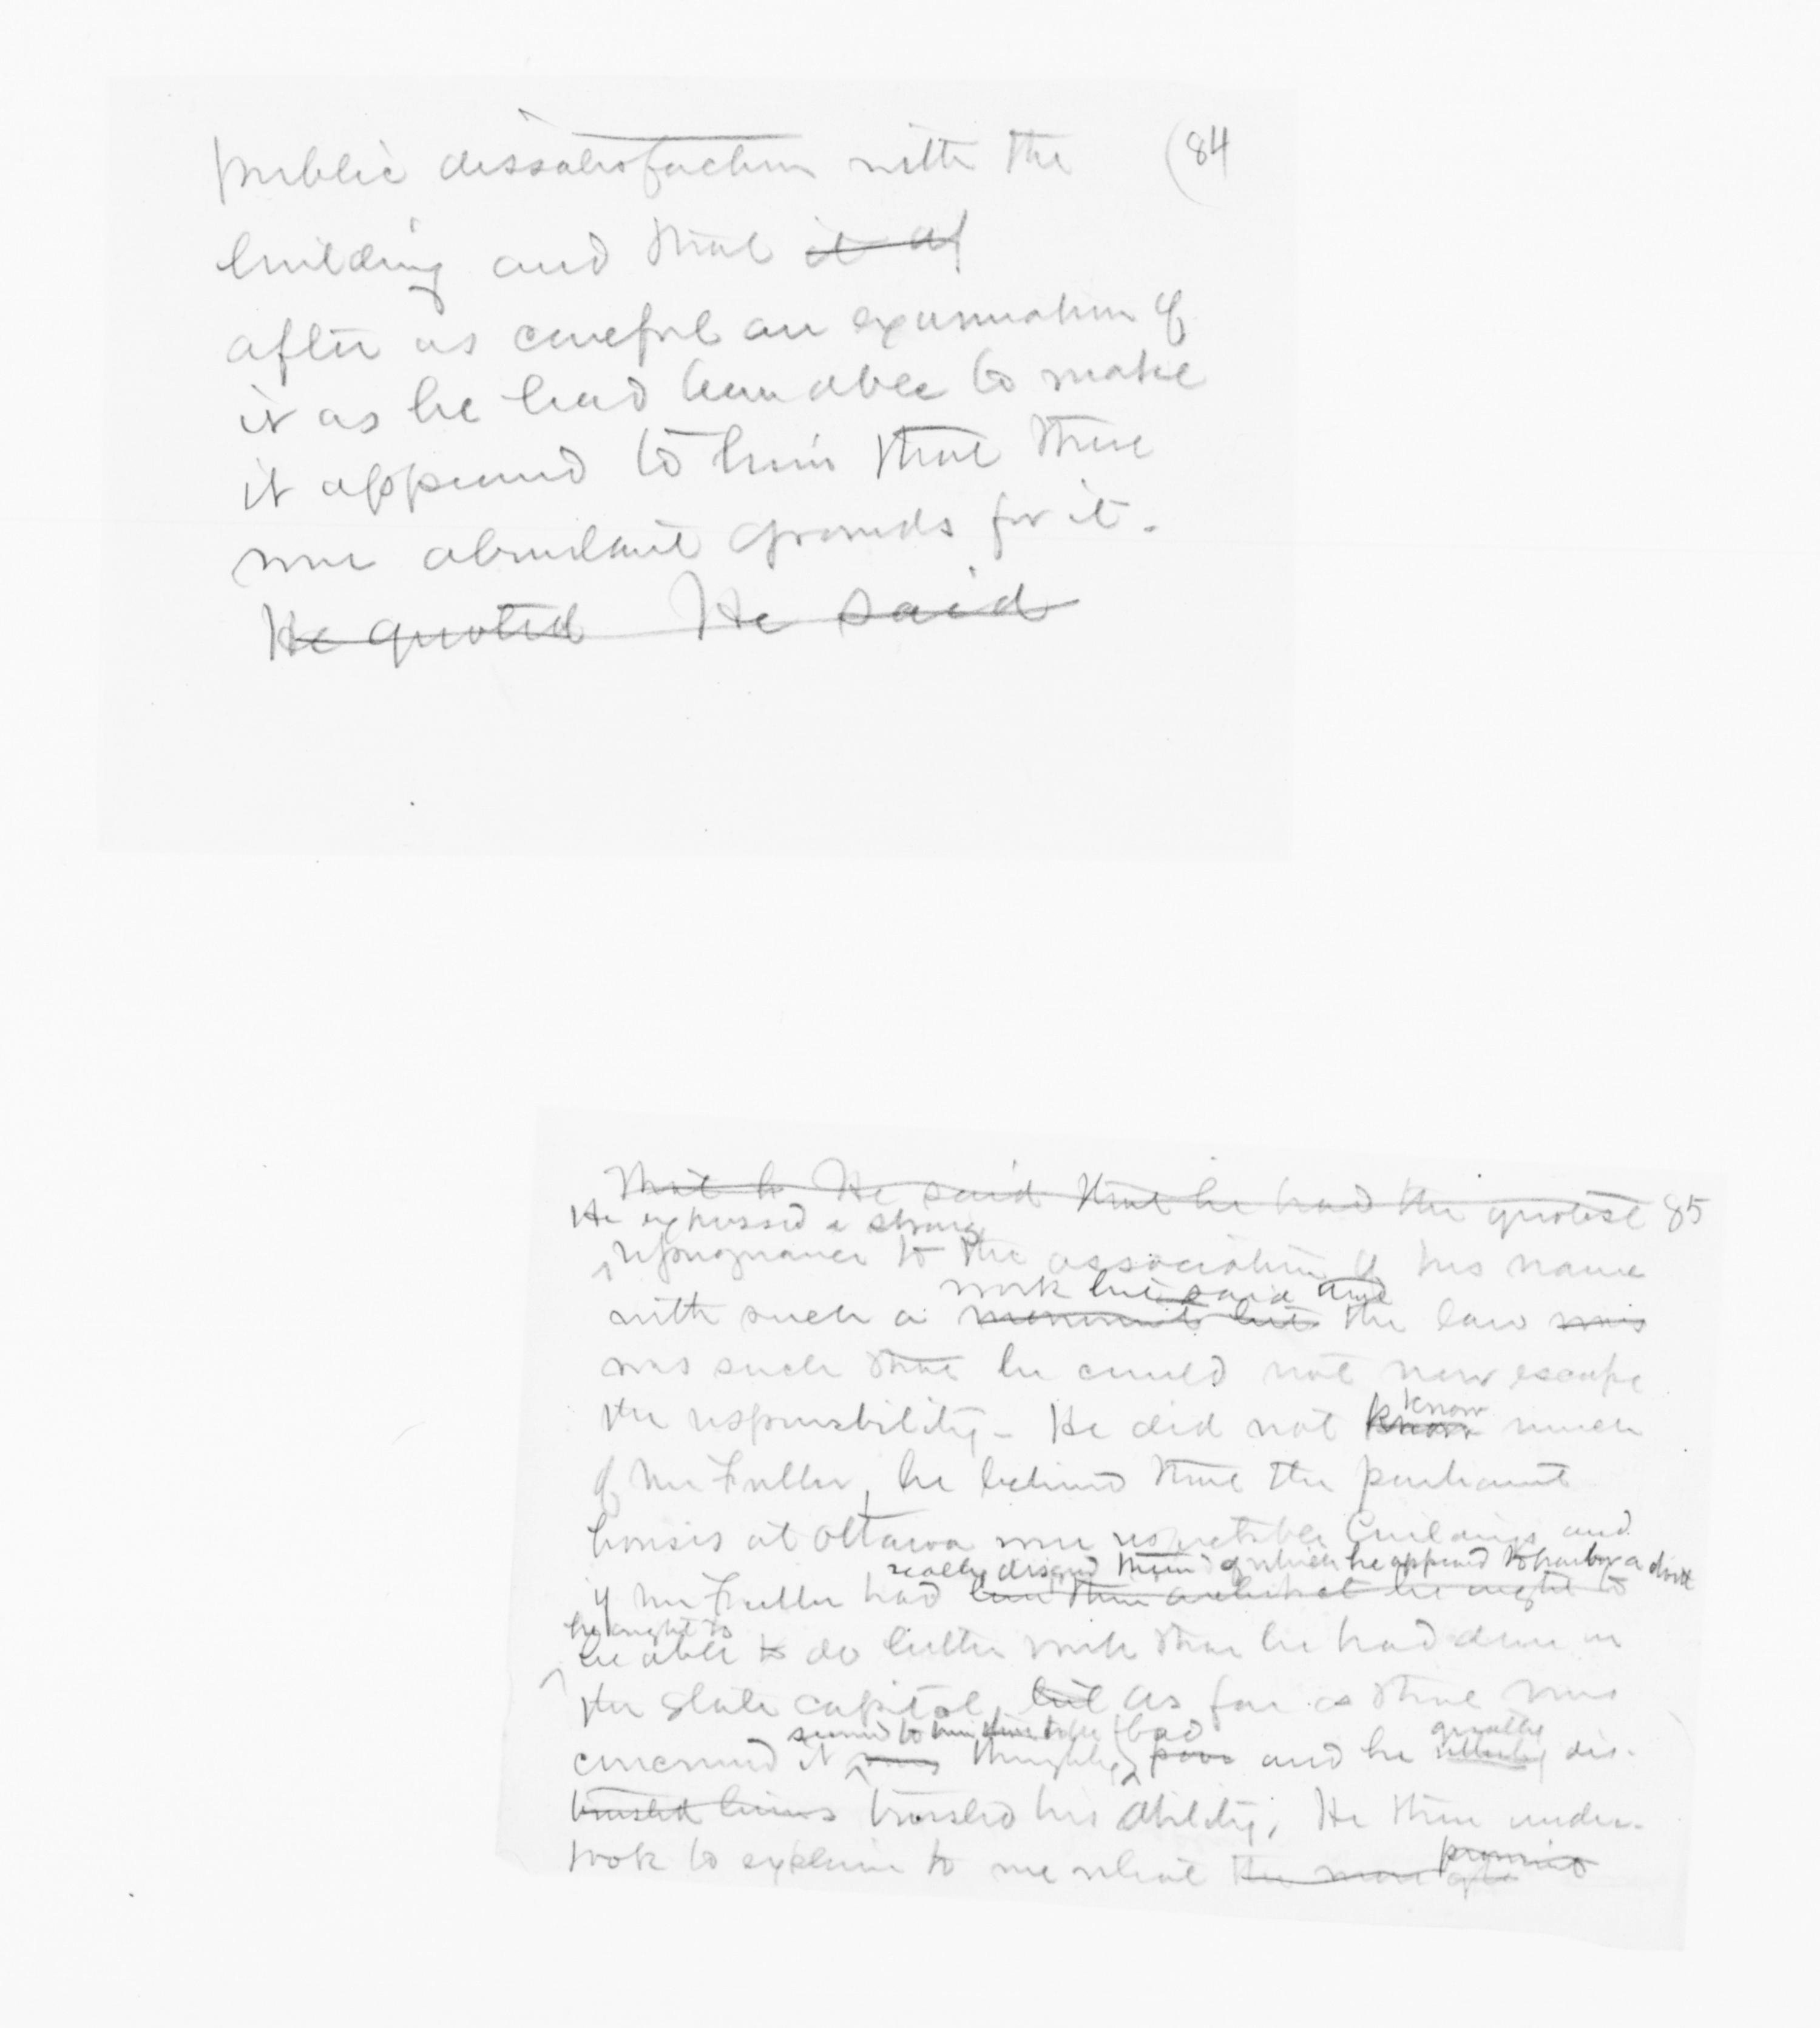 public dissatisfaction with the (84
building and that it af
after as careful an examination of
it as he had been able to make
it appeared to him that there
were abundant grounds for it.
He quoted He said
That h He said that he had the greatest 85
He expressed a strong
repugnance to the association of his name
work but said and
with such a but the law was
was such that he could not now escape
know
the responsibility - He did not know much
of Mr Fuller, he believed that the parliament
houses at Ottawa were respectable buildings and
really designed them of which he appeared to harbor a doubt
if Mr Fuller had been their architect he ought to
he ought to
be able to do better work than he had done in
the State capitol, but as far as that was
seemed to him bad
greatly
concerned it was thoroughly poor and he utterly dis-
trusted him trusted his ability. He then under-
promised
took to explain to me what the